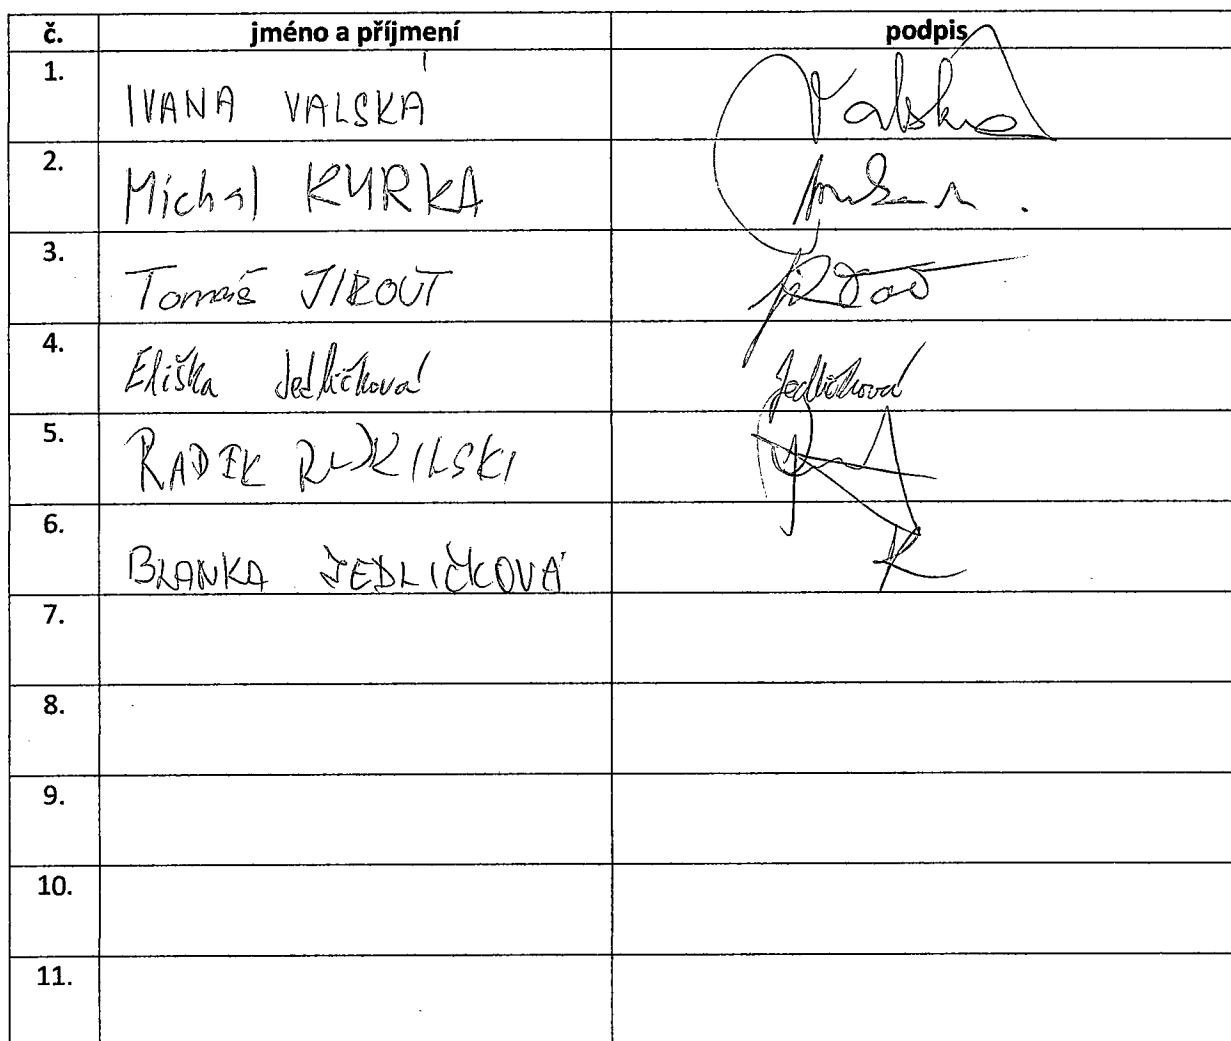 č. jméno a příjmení podpis
1. IVANA VALSKÁ Valská
2. Michal KYRKA
3. Tomáš JIROUT
4. Eliška Jedličková Jedličková
5. RADEK
6. BLANKA JEDLIČKOVÁ
7.
8.
9.
10.
11.